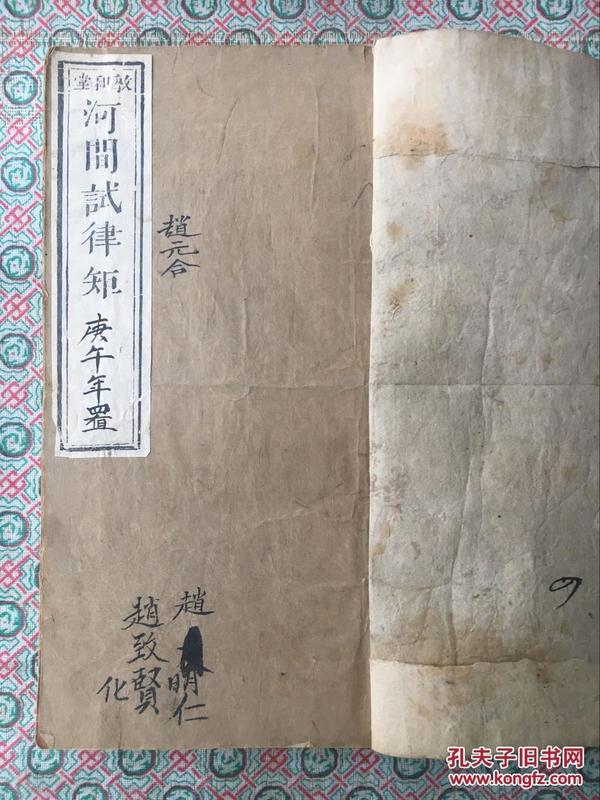 敦和堂
河間試律矩
庚午年置
趙元合
趙 明仁
趙致賢
化
孔夫子旧书网
www.kongfz.com